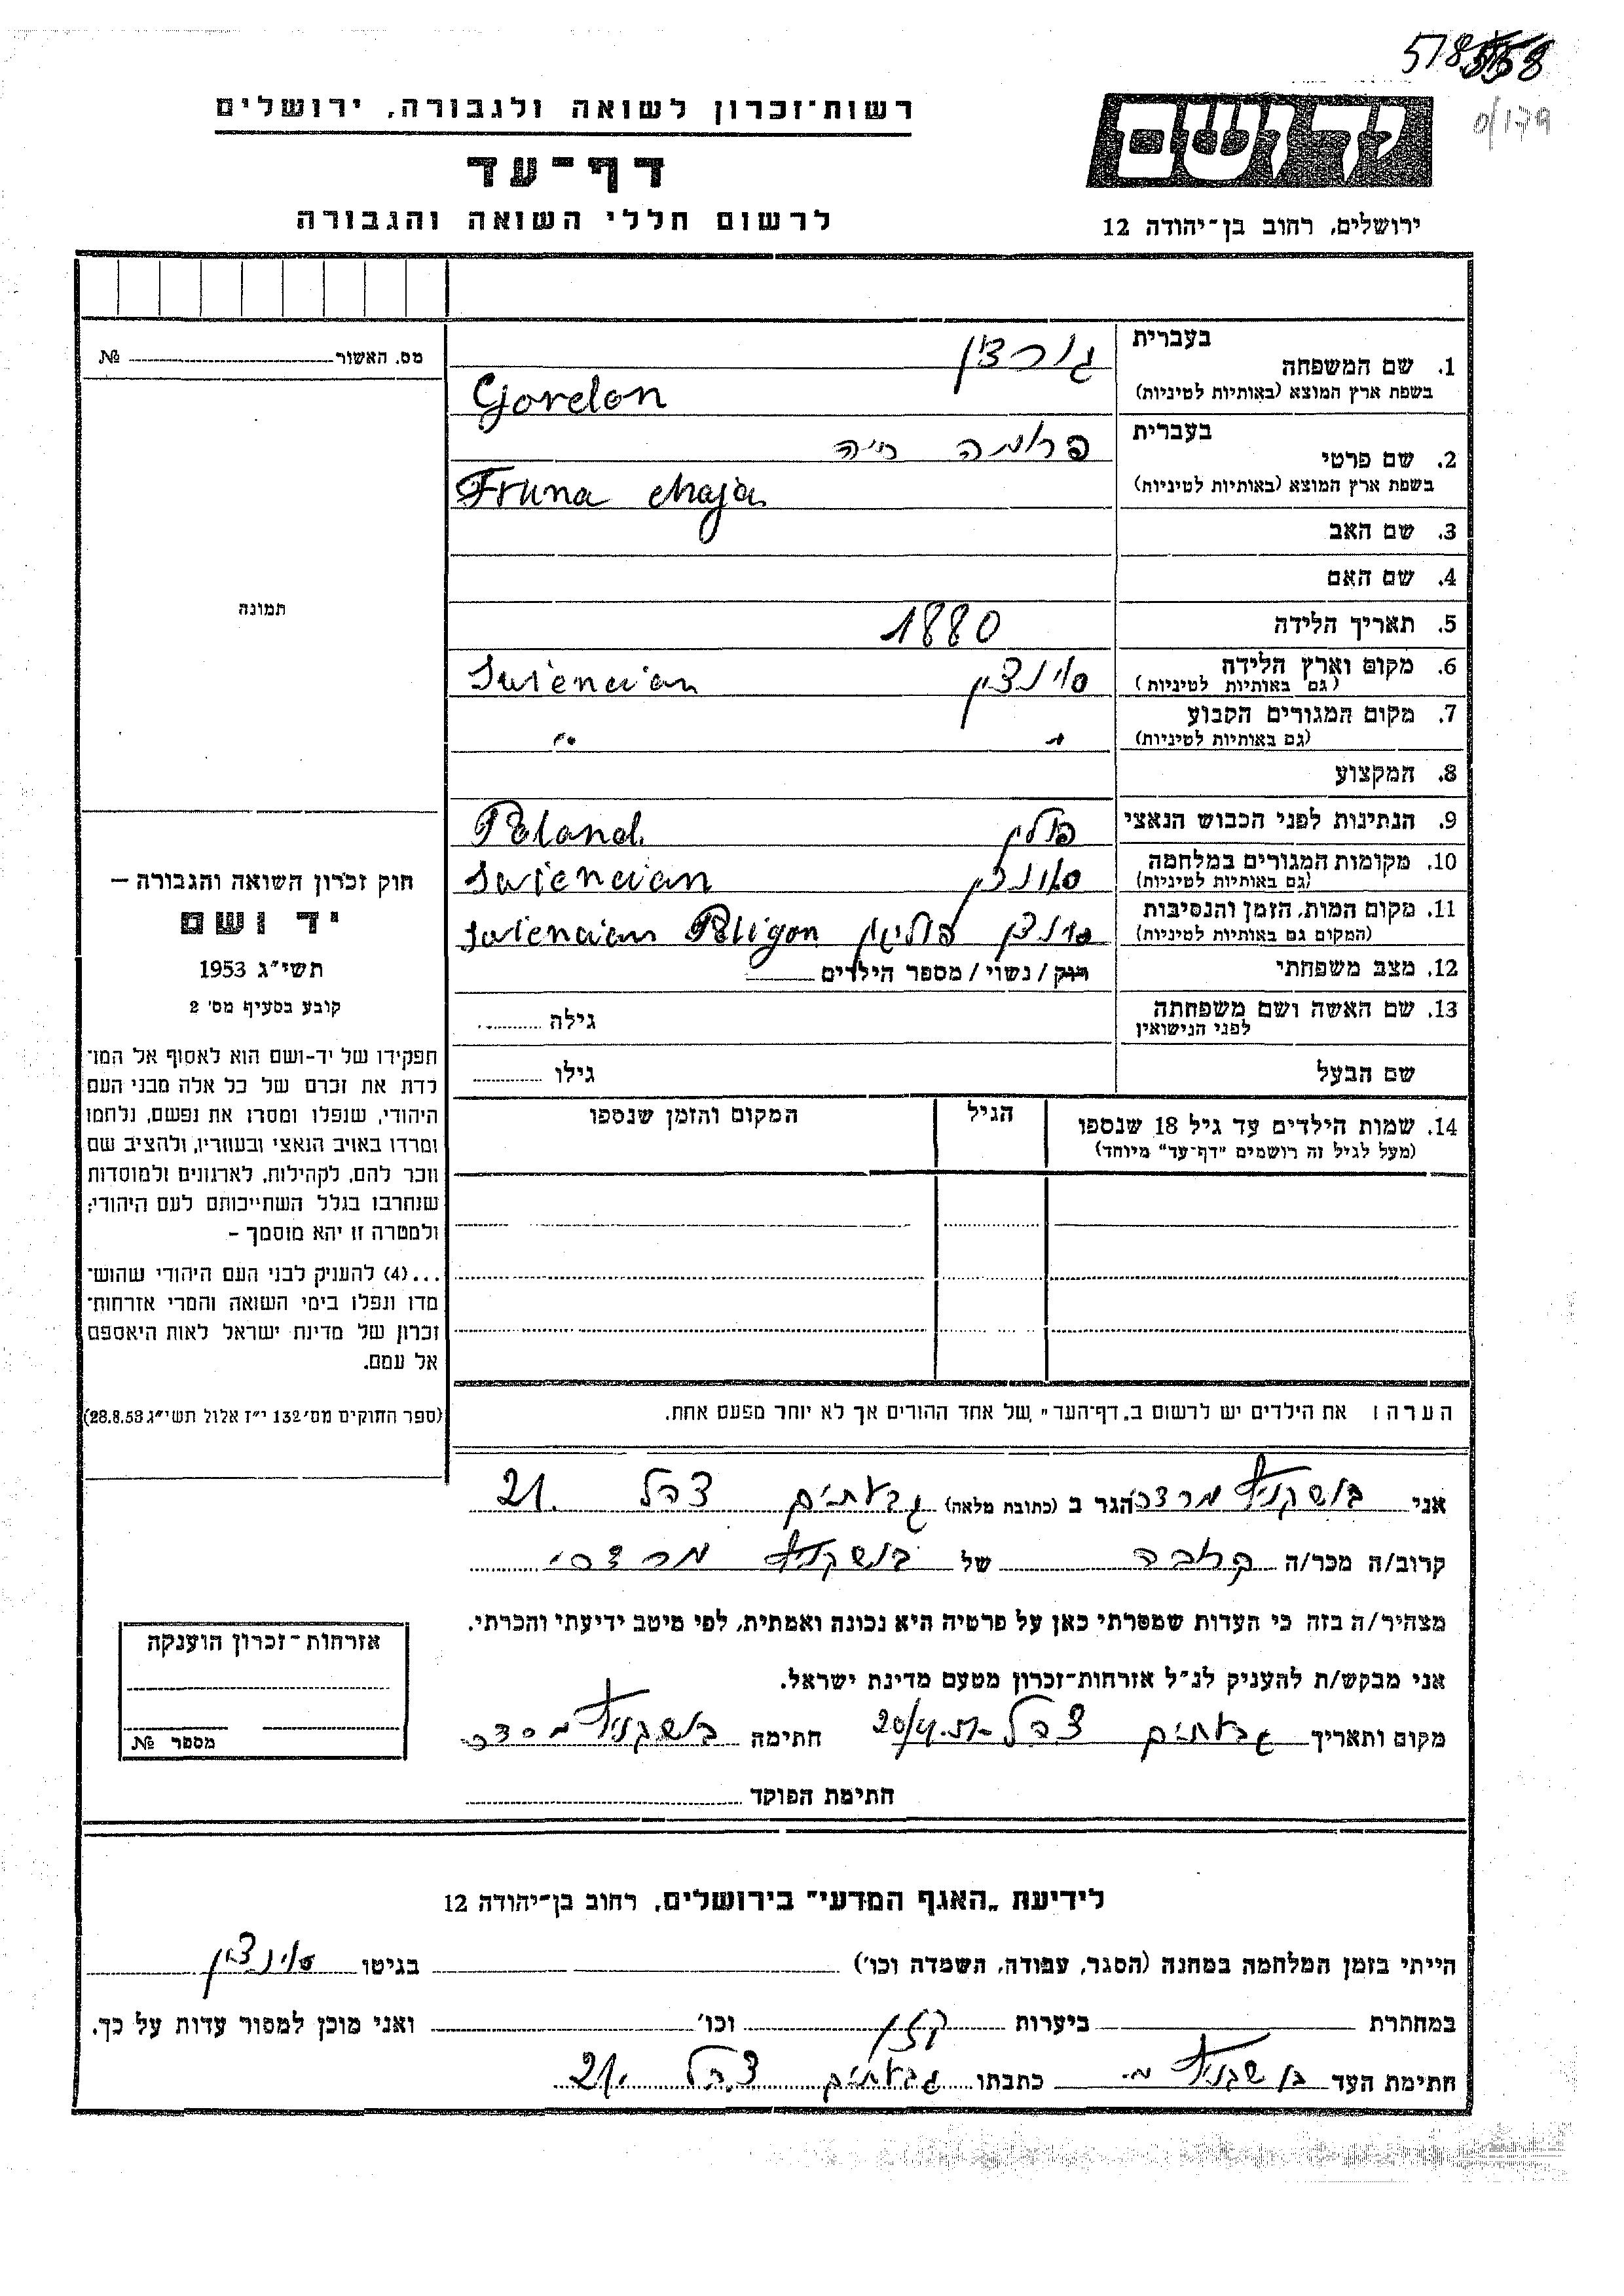 518558
ס/179
רשות־זכרון לשואה ולגבורה, ירושלים
דף־עד
לרשום חללי השואה והגבורה
יד ושם
ירושלים, רחוב בן־יהודה 12
מס. האשור №
תמונה
חוק זכרון השואה והגבורה —
יד ושם
תשי״ג 1953
קובע בסעיף מס׳ 2
תפקידו של יד-ושם הוא לאסוף אל המו־
לדת את זכרם של כל אלה מבני העם
היהודי, שנפלו ומסרו את נפשם, נלחמו
ומרדו באויב הנאצי ובעוזריו, ולהציב שם
וזכר להם, לקהילות, לארגונים ולמוסדות
שנחרבו בגלל השתייכותם לעם היהודי;
ולמטרה זו יהא מוסמך –
...(4) להעניק לבני העם היהודי שהוש־
מדו ונפלו בימי השואה והמרי אזרחות־
זכרון של מדינת ישראל לאות היאספם
אל עמם.
(ספר החוקים מס׳ 132 י״ז אלול תשי״ג 28.8.53)
1. שם המשפחה בעברית גורדון
בשפת ארץ המוצא (באותיות לטיניות) Gordon
2. שם פרטי בעברית פרומה חיה
בשפת ארץ המוצא (באותיות לטיניות) Fruna chaja
3. שם האב
4. שם האם
5. תאריך הלידה 1880
6. מקום וארץ הלידה סוינצין Swiencian
(גם באותיות לטיניות)
7. מקום המגורים הקבוע " "
(גם באותיות לטיניות)
8. המקצוע
9. הנתינות לפני הכבוש הנאצי פולין Poland
10. מקומות המגורים במלחמה סוינצין Swiencian
(גם באותיות לטיניות)
11. מקום המות, הזמן והנסיבות סוינצין פוליגון Swiencian Poligon
(המקום גם באותיות לטיניות)
12. מצב משפחתי רווק / נשוי / מספר הילדים
13. שם האשה ושם משפחתה גילה
לפני הנישואין
שם הבעל גילו
14. שמות הילדים עד גיל 18 שנספו הגיל המקום והזמן שנספו
(מעל לגיל זה רושמים ״דף־עד״ מיוחד)
הערה: את הילדים יש לרשום ב„דף־העד״ של אחד ההורים אך לא יותר מפעם אחת.
אני בושקניץ מרדכי הגר ב (כתובת מלאה) גבעתים צהל 21.
קרוב/ה מכר/ה קרובה של בושקניץ מרדכי
מצהיר/ה בזה כי העדות שמסרתי כאן על פרטיה היא נכונה ואמתית, לפי מיטב ידיעתי והכרתי.
אני מבקש/ת להעניק לנ״ל אזרחות־זכרון מטעם מדינת ישראל.
מקום ותאריך גבעתים צהל חתימה בושקניץ מרדכי
חתימת הפוקד
אזרחות־זכרון הוענקה
מספר №
לידיעת „האגף המדעי״ בירושלים, רחוב בן־יהודה 12
הייתי בזמן המלחמה במחנה (הסגר, עבודה, השמדה וכו׳) בגיטו סוינצין
במחתרת ביערות קוזין וכו׳ ואני מוכן למסור עדות על כך.
חתימת העד בושקניץ מ. כתבתו גבעתים צהל 21.